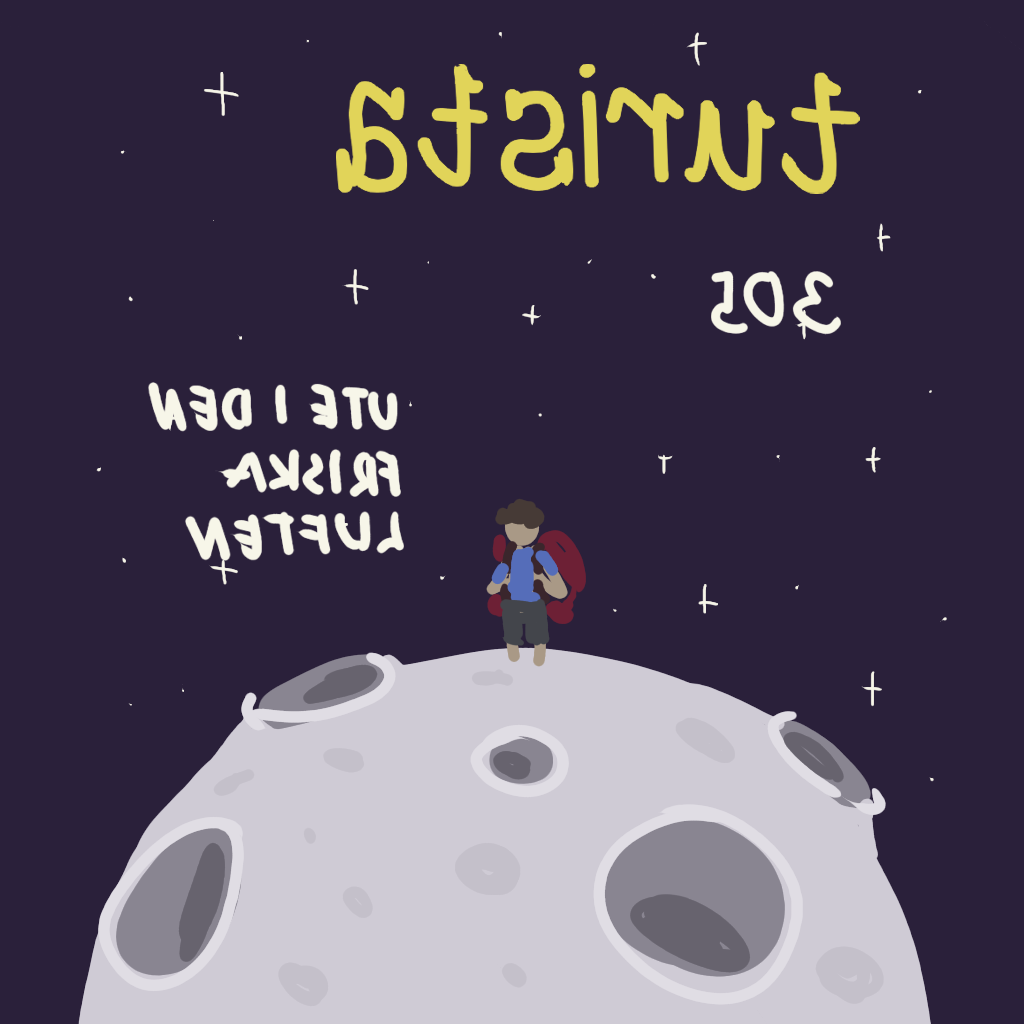 turista
305
UTE I DEN
FRISKA
LUFTEN